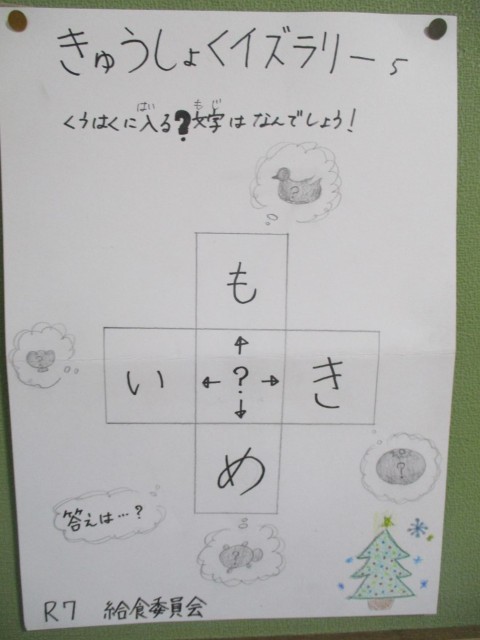 きゅうしょくイズラリー5
くうはくに入る?文字はなんでしょう!
はい
もじ
?
も
い
?
き
?
?
め
答えは…?
?
R7 給食委員会